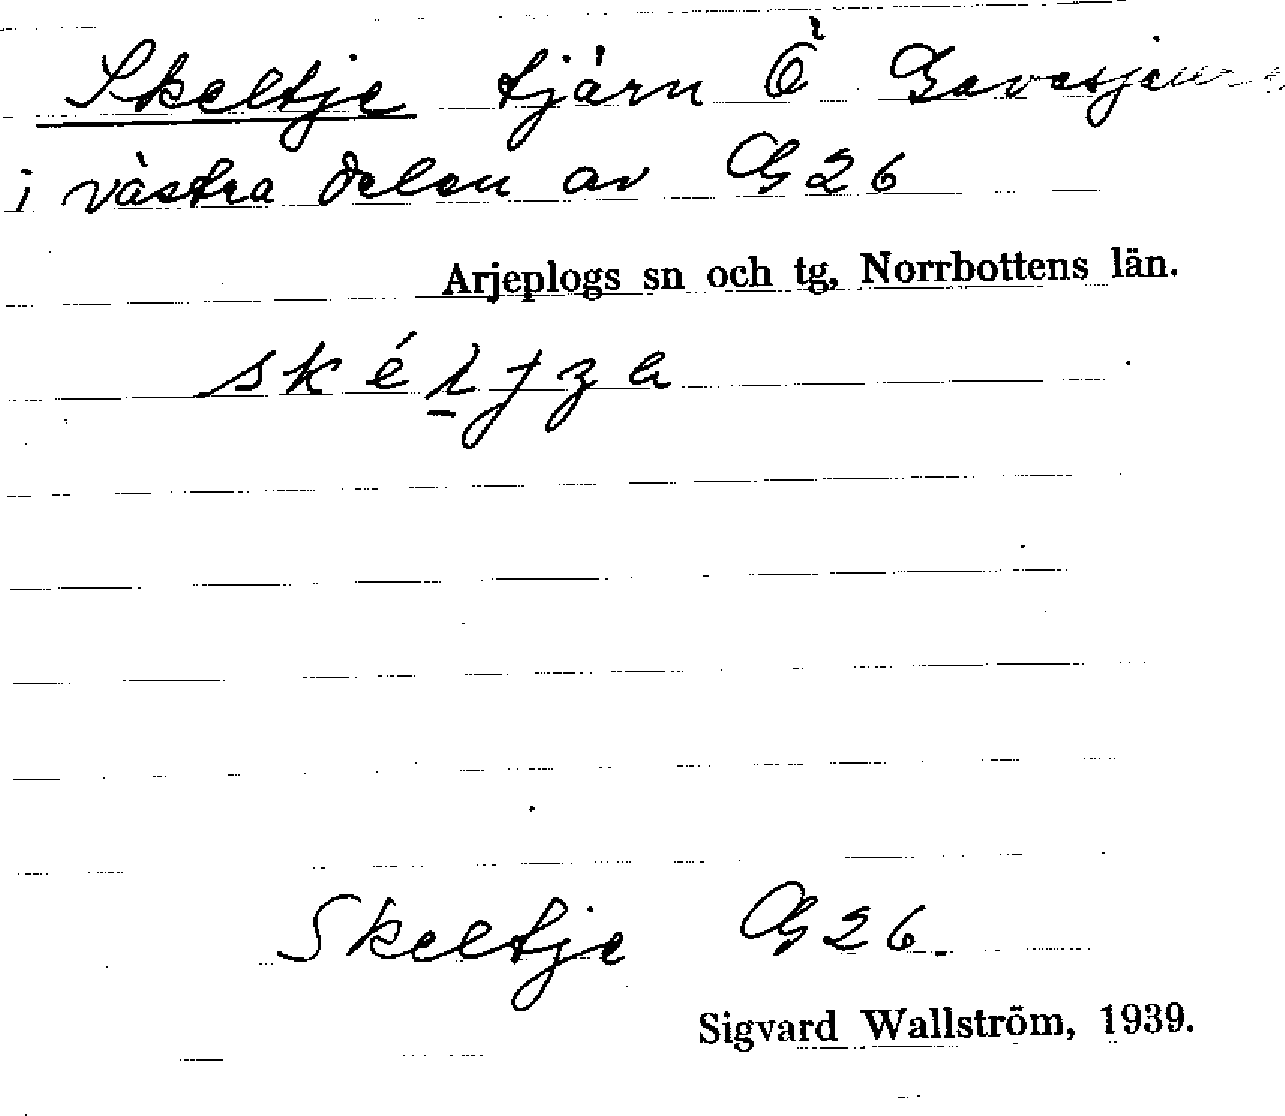 Skeltje tjärn Ö
i västra delen av G26
Arjeplogs sn och tg, Norrbottens län.
Skeltje G26.
Sigvard Wallström, 1939.